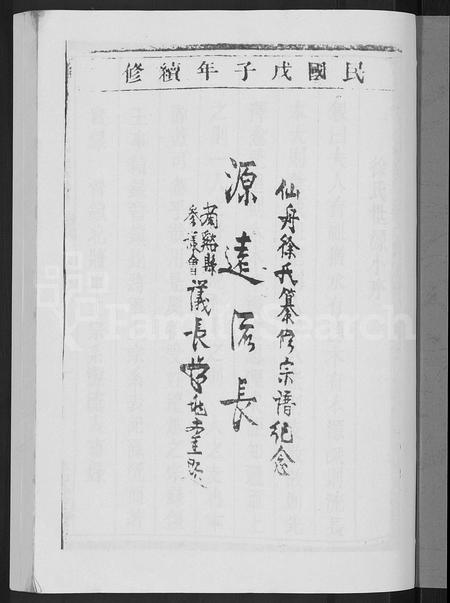 民國戊子年續修
仙舟徐氏纂修宗譜紀念
源遠流長
蘭谿縣參議會議長
題
FamilySearch